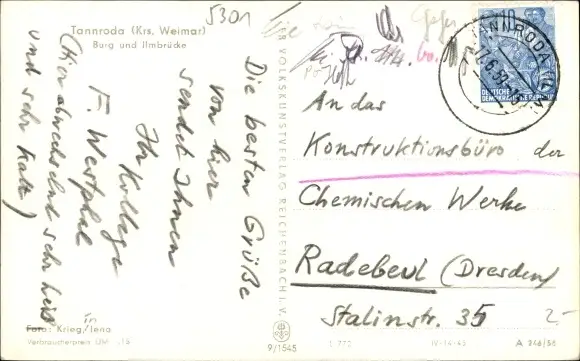 5301
Tannroda (Krs. Weimar)
Burg und Ilmbrücke
Die besten Grüße
von hier
sendet Ihnen
Ihr Kollege
F. Westphal
(Hier abwechselnd sehr heiß
und sehr kalt)
Foto: Krieg, in Jena
Verbraucherpreis DM -.15
VOLKSKUNSTVERLAG REICHENBACH I. V.
9/1545
TANNRODA (ILM)
DEUTSCHE
DEMOKRATISCHE REPUBLIK
10
An das
Konstruktionsbüro der
Chemischen Werke
Radebeul (Dresden)
Stalinstr. 35
2,-
IV-14-45
A 246/56